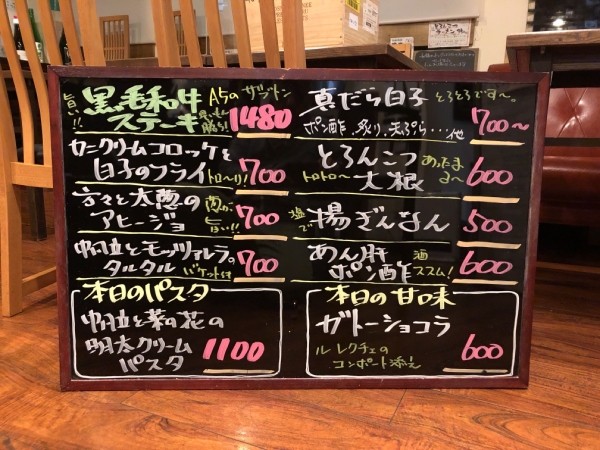 旨い!! 黒毛和牛 A5の ザブトン
ステーキ 早いもん勝ち! 1480
カニクリームコロッケと
白子のフライ トロ〜リ! 700
アヒージョ 旨い!! 700
帆立とモッツァレラの
タルタル バケット付 700
本日のパスタ
帆立と菜の花の
明太クリーム
パスタ 1100
真だら白子 とろとろです〜。
ポン酢、炙り、天ぷら…他 700〜
とろんこつ あったまる〜
トロトロ〜 大根 600
塩で 揚ぎんなん 500
あん肝
ポン酢 酒ススム! 600
本日の甘味
ガトーショコラ
ル レクチェの
コンポート添え 600